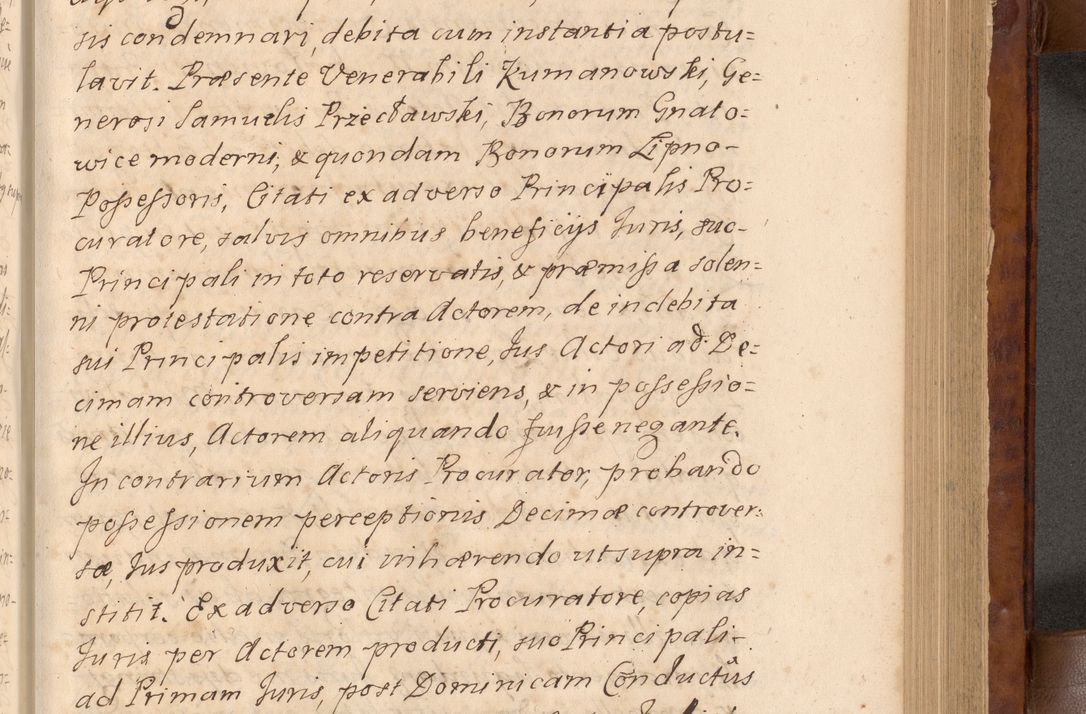 sis condemnari, debita cum instantia postu=
lavit. Præsente Venerabili Kumanowski, Ge=
nerosi Samuelis Przecławski, Bonorum Gnato=
wice moderni, & quondam Bonorum Lipno-
Poſseſsoris, Citati ex adverso Principalis Pro=
curatore, salvis omnibus beneficijs Juris, suo-
Principali in toto reservatis, & præmiſsa solen=
ni protestatione contra Actorem, de indebita
sui Principalis impetitione, Jus Actori ad De=
cimam controversam serviens, & in poſseſsio=
ne illius, Actorem aliquando fuiſse negante.
In contrarium Actoris Procurator, probando
poſseſsionem perceptionis Decimæ controver=
sæ, Jus produxit, cui inhærendo ut supra in=
stitit. Ex adverso Citati Procuratore, copias
Juris per Actorem producti, suo Principali-
ad Primam Juris, post Dominicam Conductûs